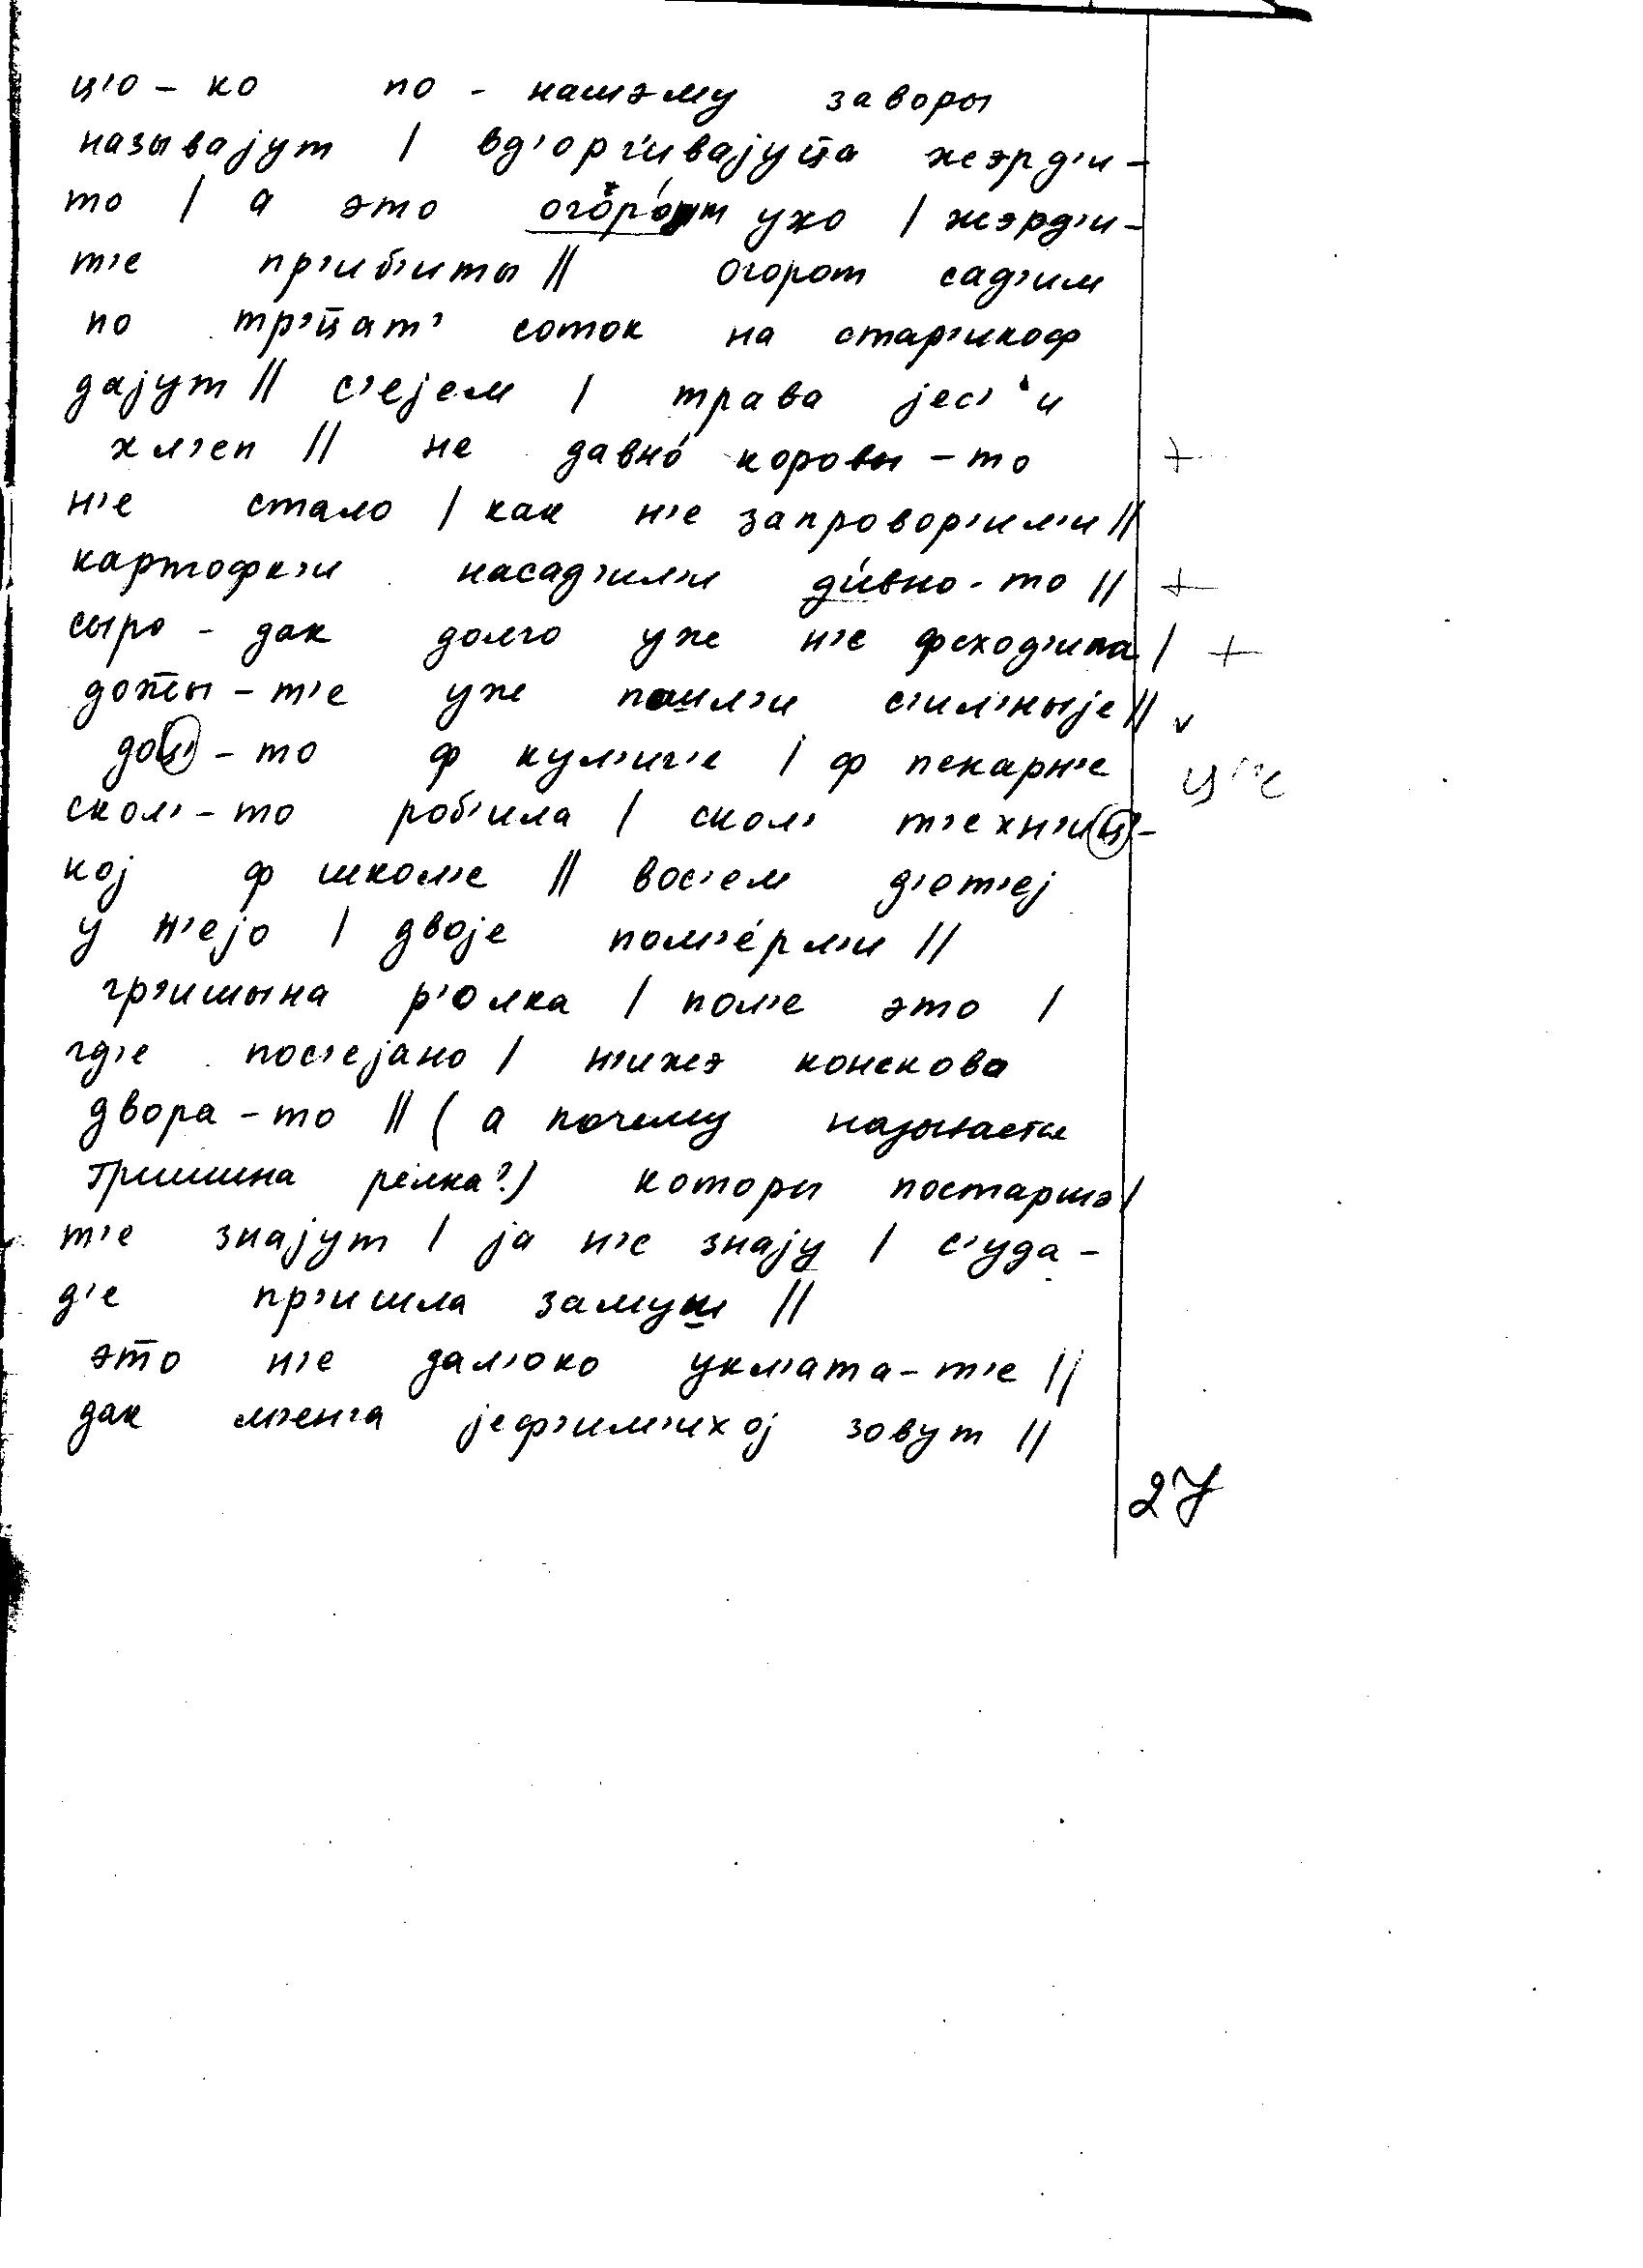 ц'о - ко по - нашэму заворы
называјут / вд'орг'ивајуц̄а жэрд'и -
то / а это огоро́т ужо / жэрд'и -
т'е пр'иб'иты // огорот сад'им
по тр'ӣцат' соток на стар'икоф
дајут // с'ејем / трава јес' и
хл'еп // не давно́ коровы - то
н'е стало / как н'е запровор'ил'и //
картофк'и насад'ил'и ди́вно - то //
сыро - дак долго уже н'е фсход'ила /
дож̄ы - т'е уже пошл'и с'ил'ныје //
доц' - то ф кул'иг'е / ф пекарн'е
скол' - то роб'ила / скол' т'ехн'иц' -
кој ф школ'е // вос'ем д'ет'еј
у н'ејо / двоје пом'е́рл'и //
гр'ишына р'олка / пол'е это /
гд'е пос'ејано / н'ижэ конскова
двора - то // ( а почему называется
Гришина рёлка?) которы постаршэ /
т'е знајут / ја н'е знају / с'уда -
д'е пр'ишла замуш //
эт̄о н'е дал'око укл'ата - т'е //
дак м'ен'а јеф'им'ихој зовут //
+
+
+
v
ц'
27